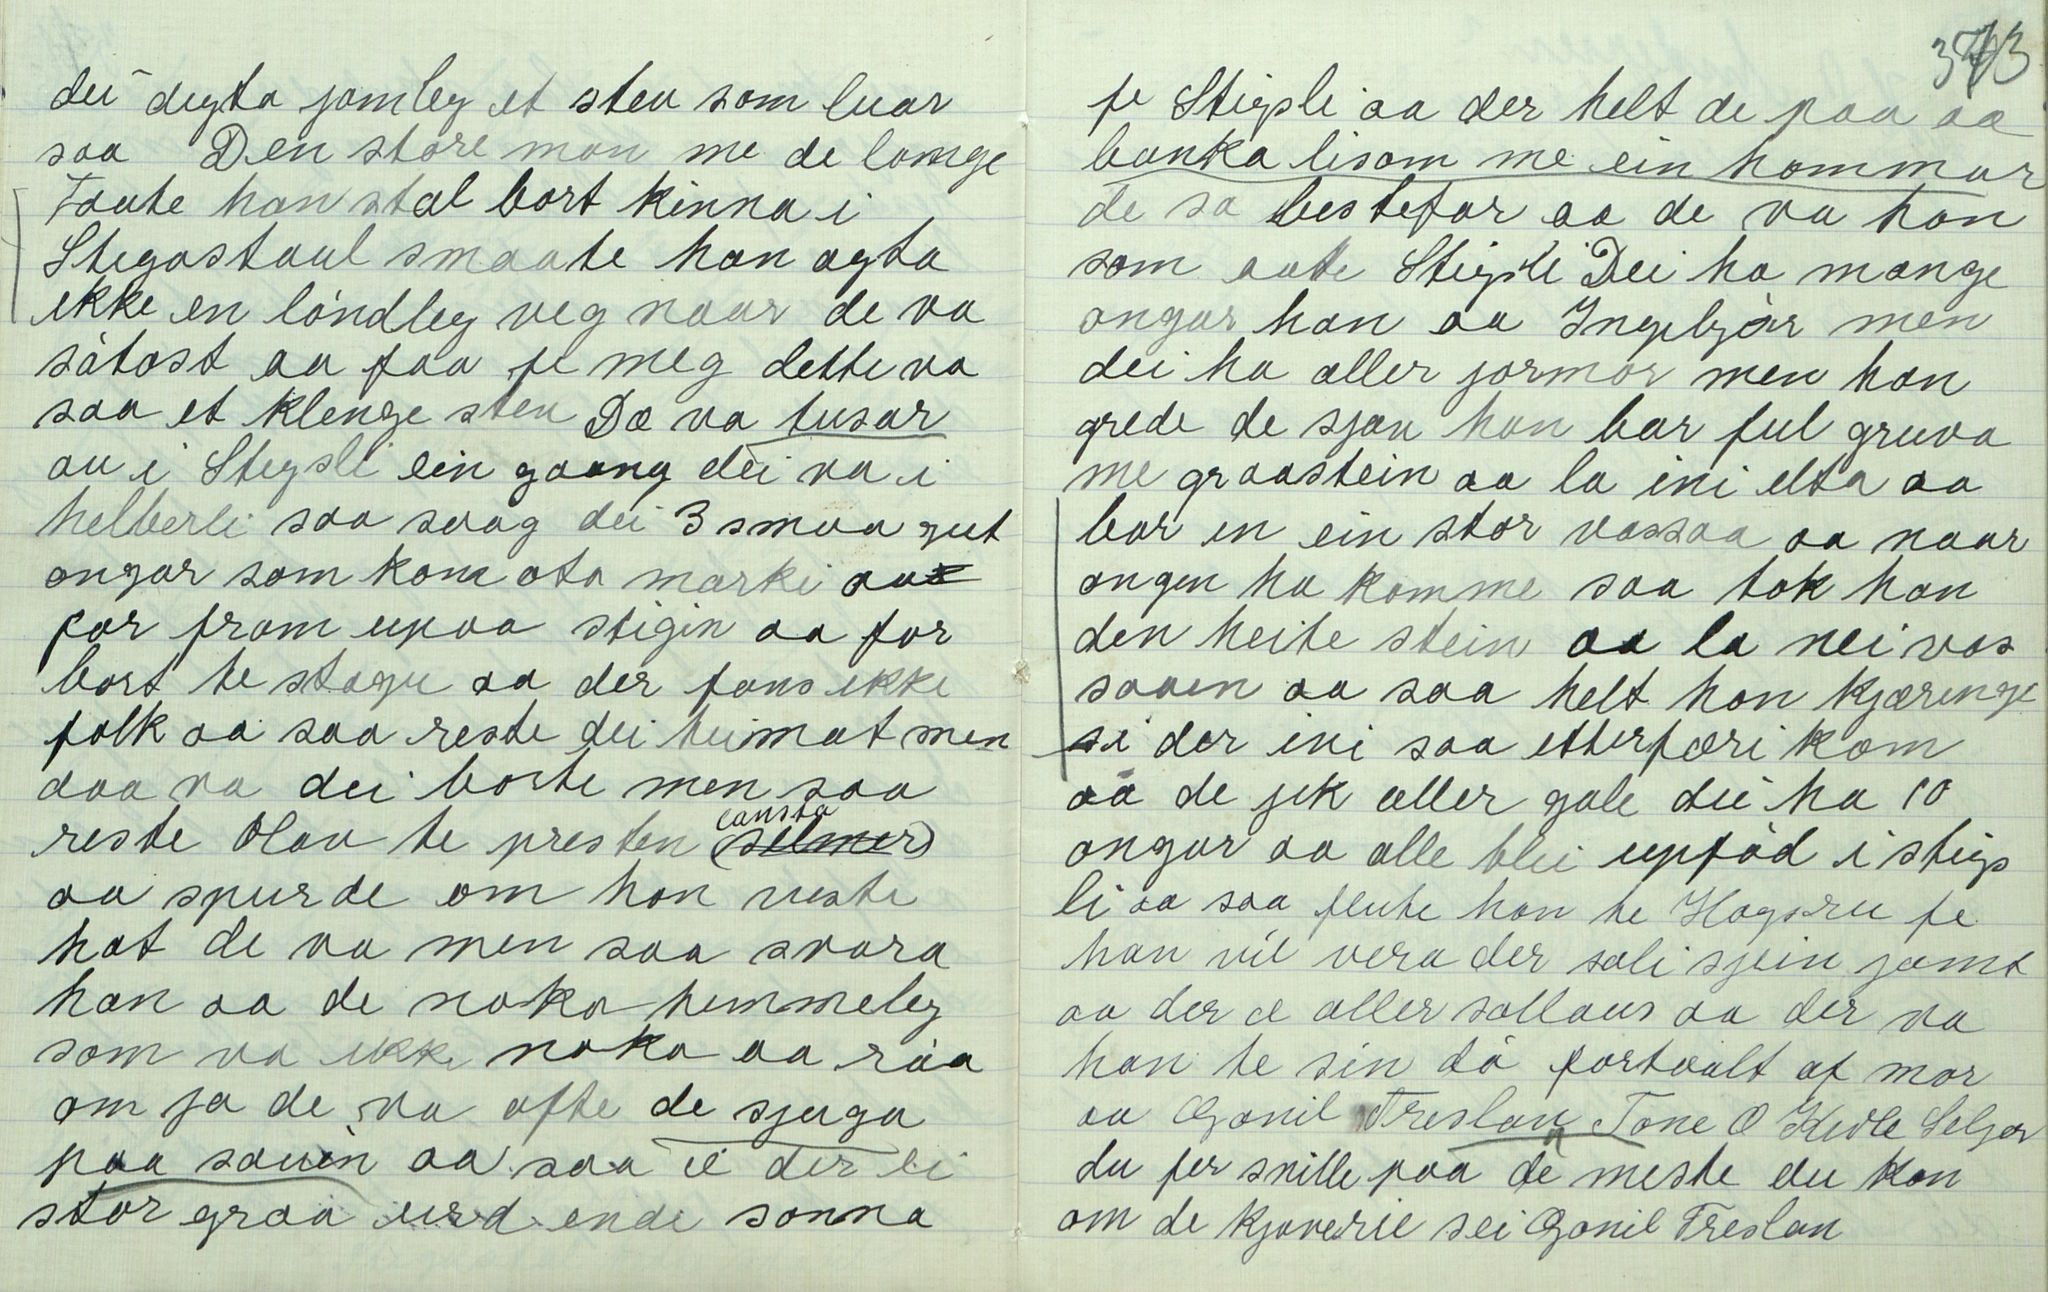 dei digta jamleg et stev som luar
saa Den store man me de lange
Faate han stal bort kinna i
Stegastaul smaate han agta
ikke en lóndleg veg naar de va
såtast aa faa fe meg dette va
saa et klenge stev Dæ va tusar
au i Stigsli ein gaang dei va i
helberli saa saag dei 3 smaa gut
ongar som kom ota marki aa
for fram upaa stigin aa for
bort te stogu aa der fans ikke
folk aa saa reste dei heimat men
daa va dei borte men saa
reste Olav te presten (selmer)
cansta
aa spurde om han viste
hat de va men saa svara
han aa de noka hemmeleg
som va ikke noka aa råa
om ja de va ofte de sjuga
paa sauin aa saa æ der ei
stor graa urd ende sonna
373
fe Stigsli aa der helt de paa aa
banka lisom me ein hammar
de sa bestefar aa de va han
som aatte Stigsli Dei ha mange
ongar han aa Ingebjår men
dei ha aller jormor men han
grede de sjav han bar ful gruva
me graastein aa la ini elta aa
bar in ein stor vassaa aa naar
ongen ha komme saa tok han
den heite stein aa la nei vas
saaen aa saa helt han kjæringe
si der ini saa etterfæri kom
aa de jek aller gale dei ha 10
ongar aa alle blei upfåd i stigs
li aa saa flute han te Hagsru fe
han vil vera der sali sjein jamt
aa der æ aller sollaus aa der va
han te sin då fortaalt af mor
aa Gonil Treslan Tone O Kivle Seljor
du fer snille paa de meste du kan
om de kjaverie sei Gonil Treslan